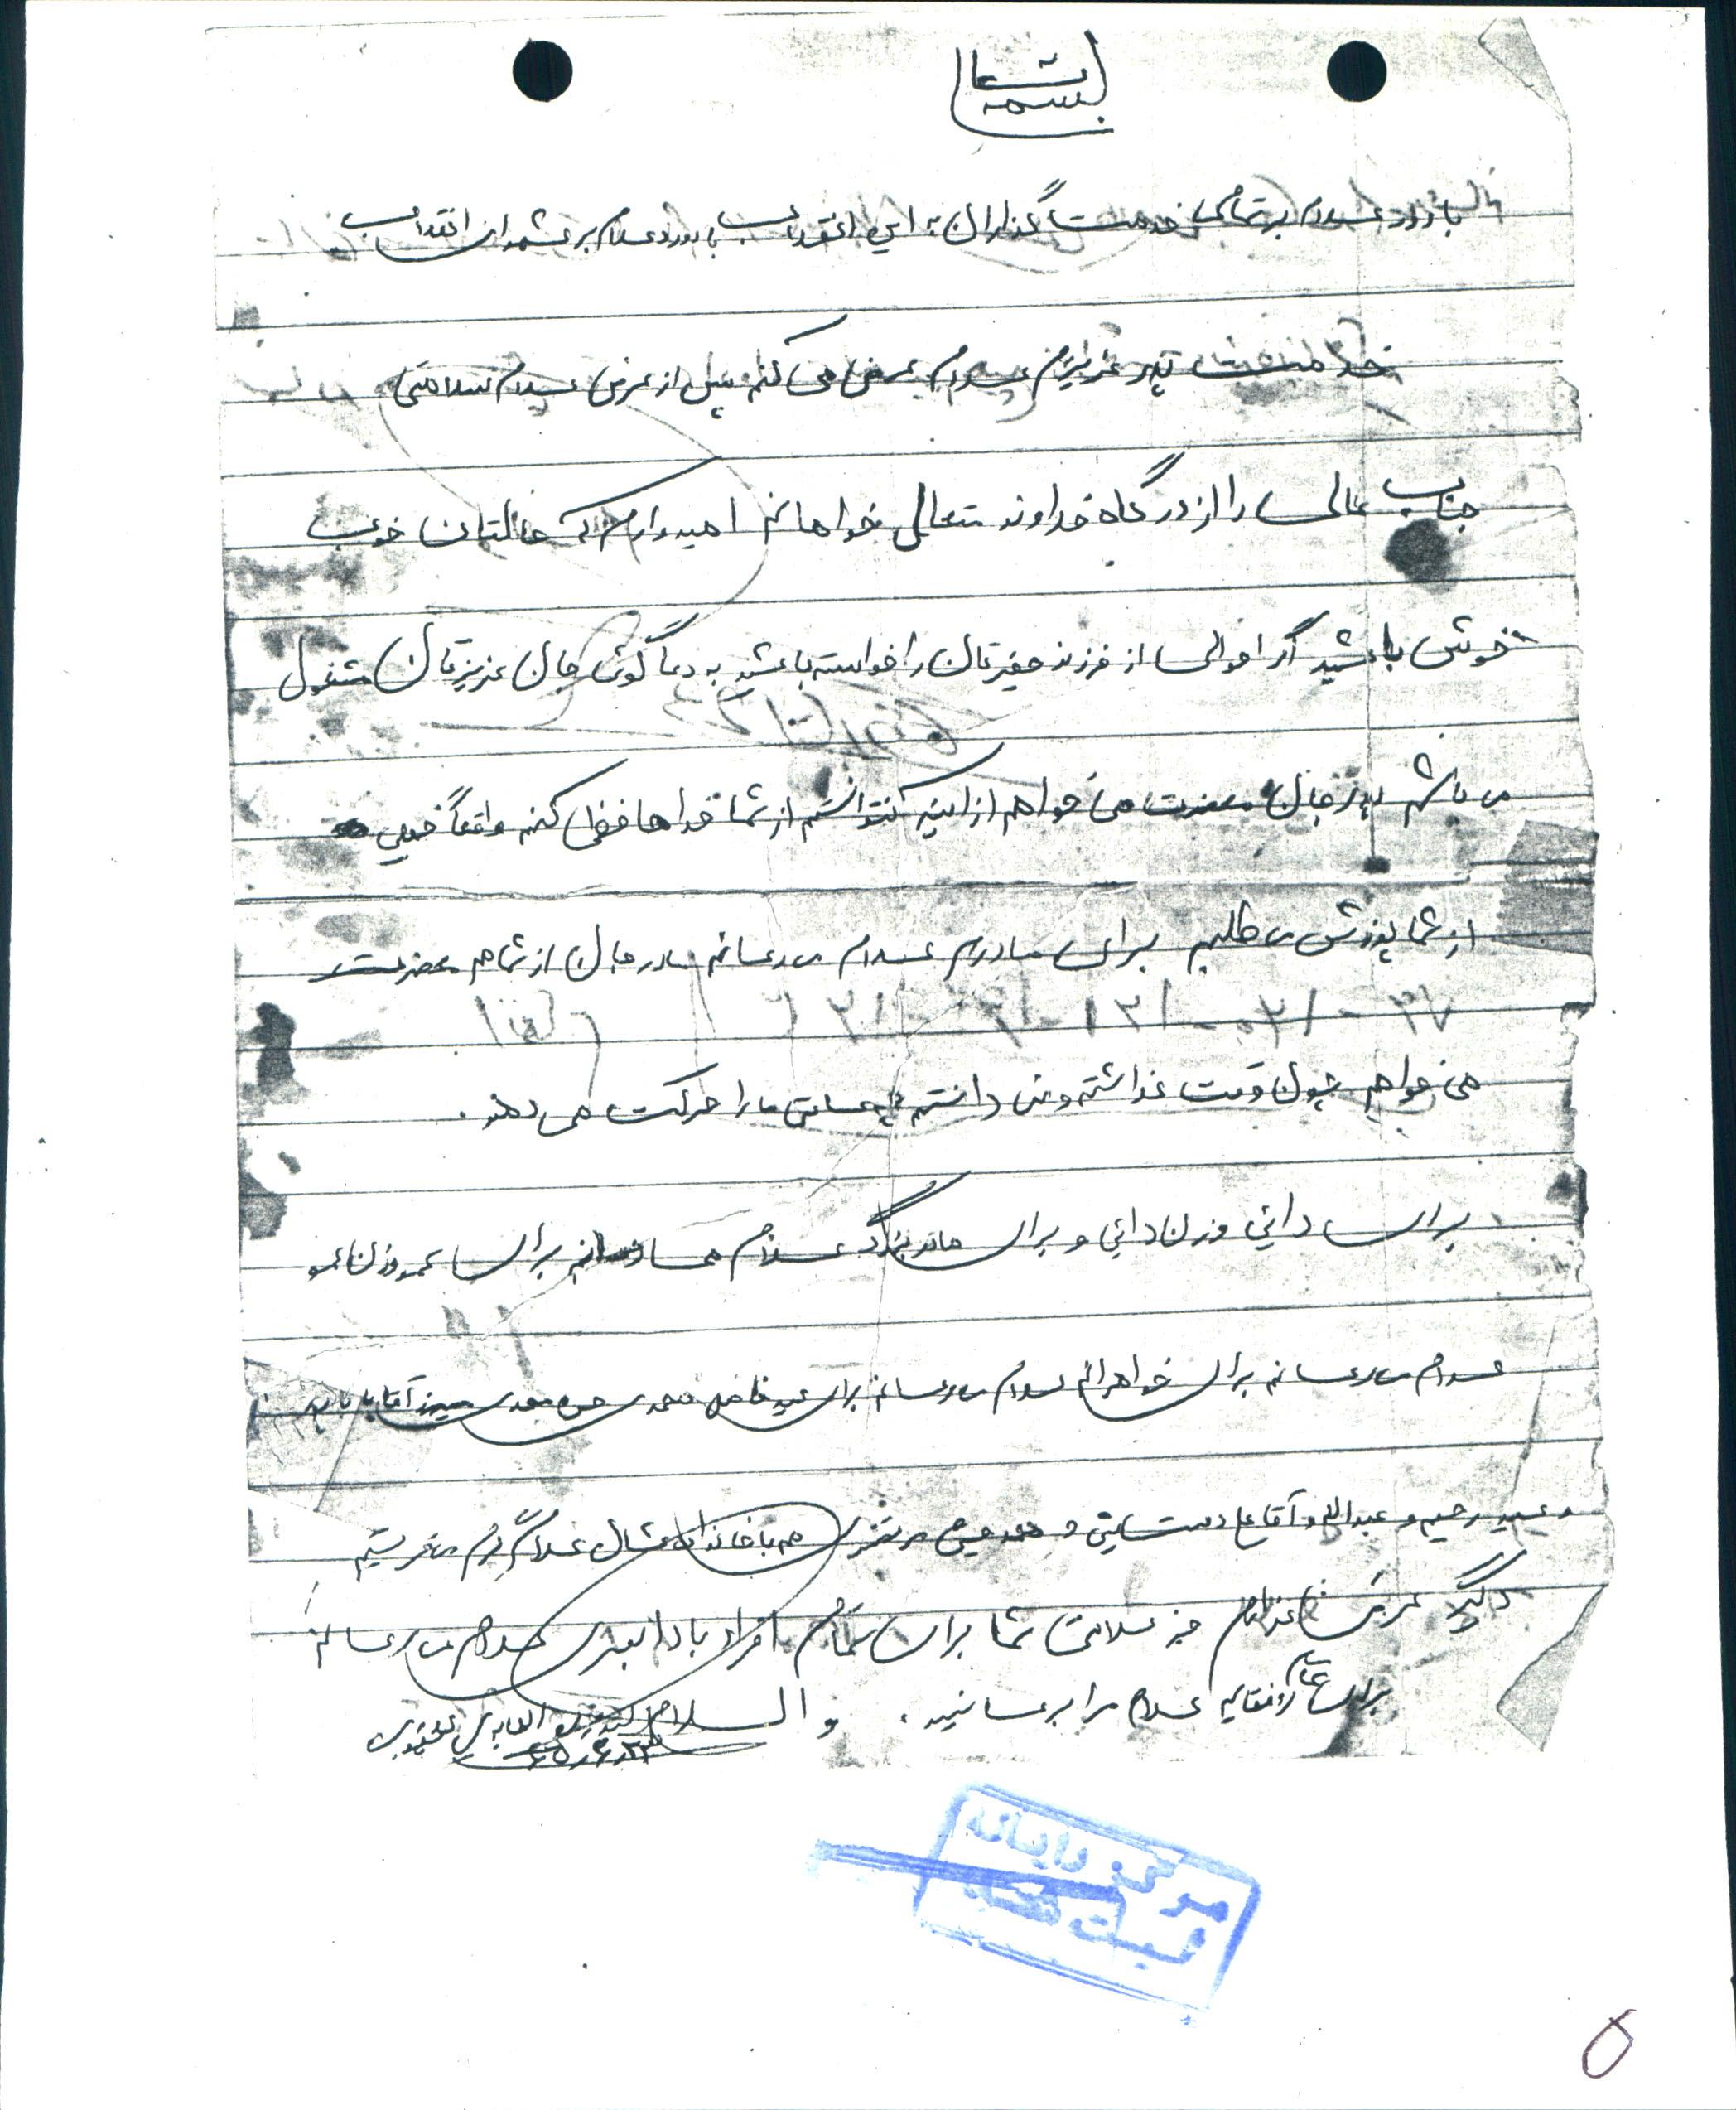 بسمه تعالی
با درود و سلام بر تمامی خدمت گذاران به این انقلاب با درود و سلام بر شهدای انقلاب
خدمت پدر عزیزم سلام عرض می کنم پس از عرض سلام سلامتی
جناب عالی را از درگاه خداوند متعال خواهانم امیدوارم که حالتان خوب
خوش باشید اگر احوالی از فرزند حقیرتان را خواسته باشید به دعا گوئی جان عزیزتان مشغول
می باشم پدر جان معذرت می خواهم از اینکه نتوانستم از شما خداحافظی کنم واقعاً خیلی
از شما پوزش می طلبم برای مادرم سلام می رسانم مادر جان از شما هم معذرت
می خواهم چون وقت نداشتم و نمی دانستم چه ساعتی ما را حرکت می دهند.
برای دائی و زن دائی و برای مادر بزرگ سلام می رسانم برای عمو و زن عمو
سلام می رسانم برای خواهرانم سلام می رسانم برای سید فاضل محمدی حسن محمدی آقا بابا
و سید رحیم و عبدالله و آقا و محمد مرتضوی هم با خانواده شان سلام گرم می فرستم
دیگر عرضی ندارم جز سلامتی شما برای تمام افراد سلام می رسانم
برای تمام رفقایم سلام مرا برسانید. والسلام سید زین العابدین
مرکز رایانه
ثبت شد
۵